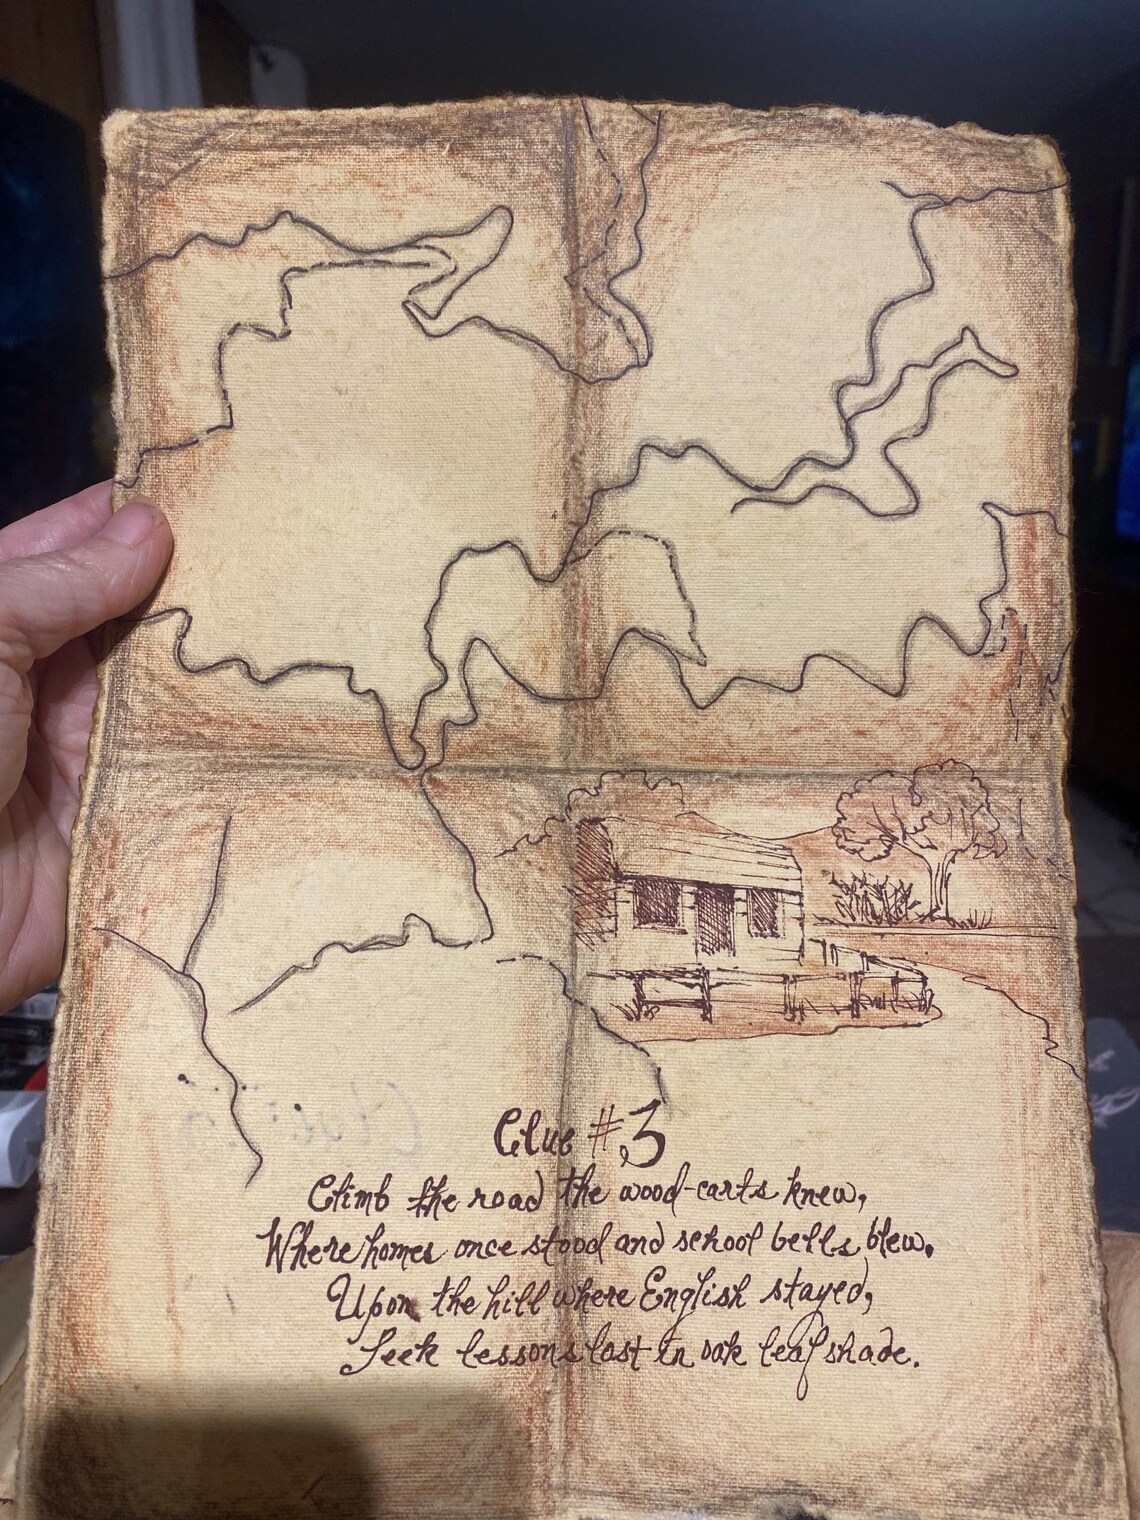 Clue #3
Climb the road the wood-carts knew,
Where homes once stood and school bells blew.
Upon the hill where English stayed,
Seek lessons lost in oak leaf shade.